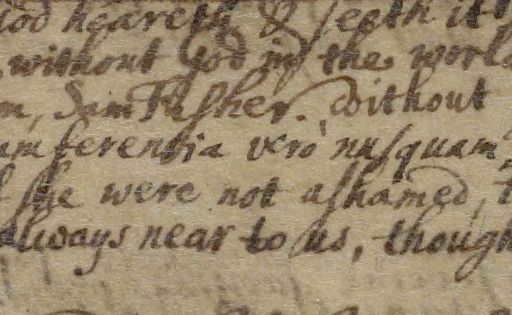 God heareth & seeth it
without God in the world
m, Sam Fisher. Without
umferentia verò nusquam
she were not ashamed, t
always near to us, though